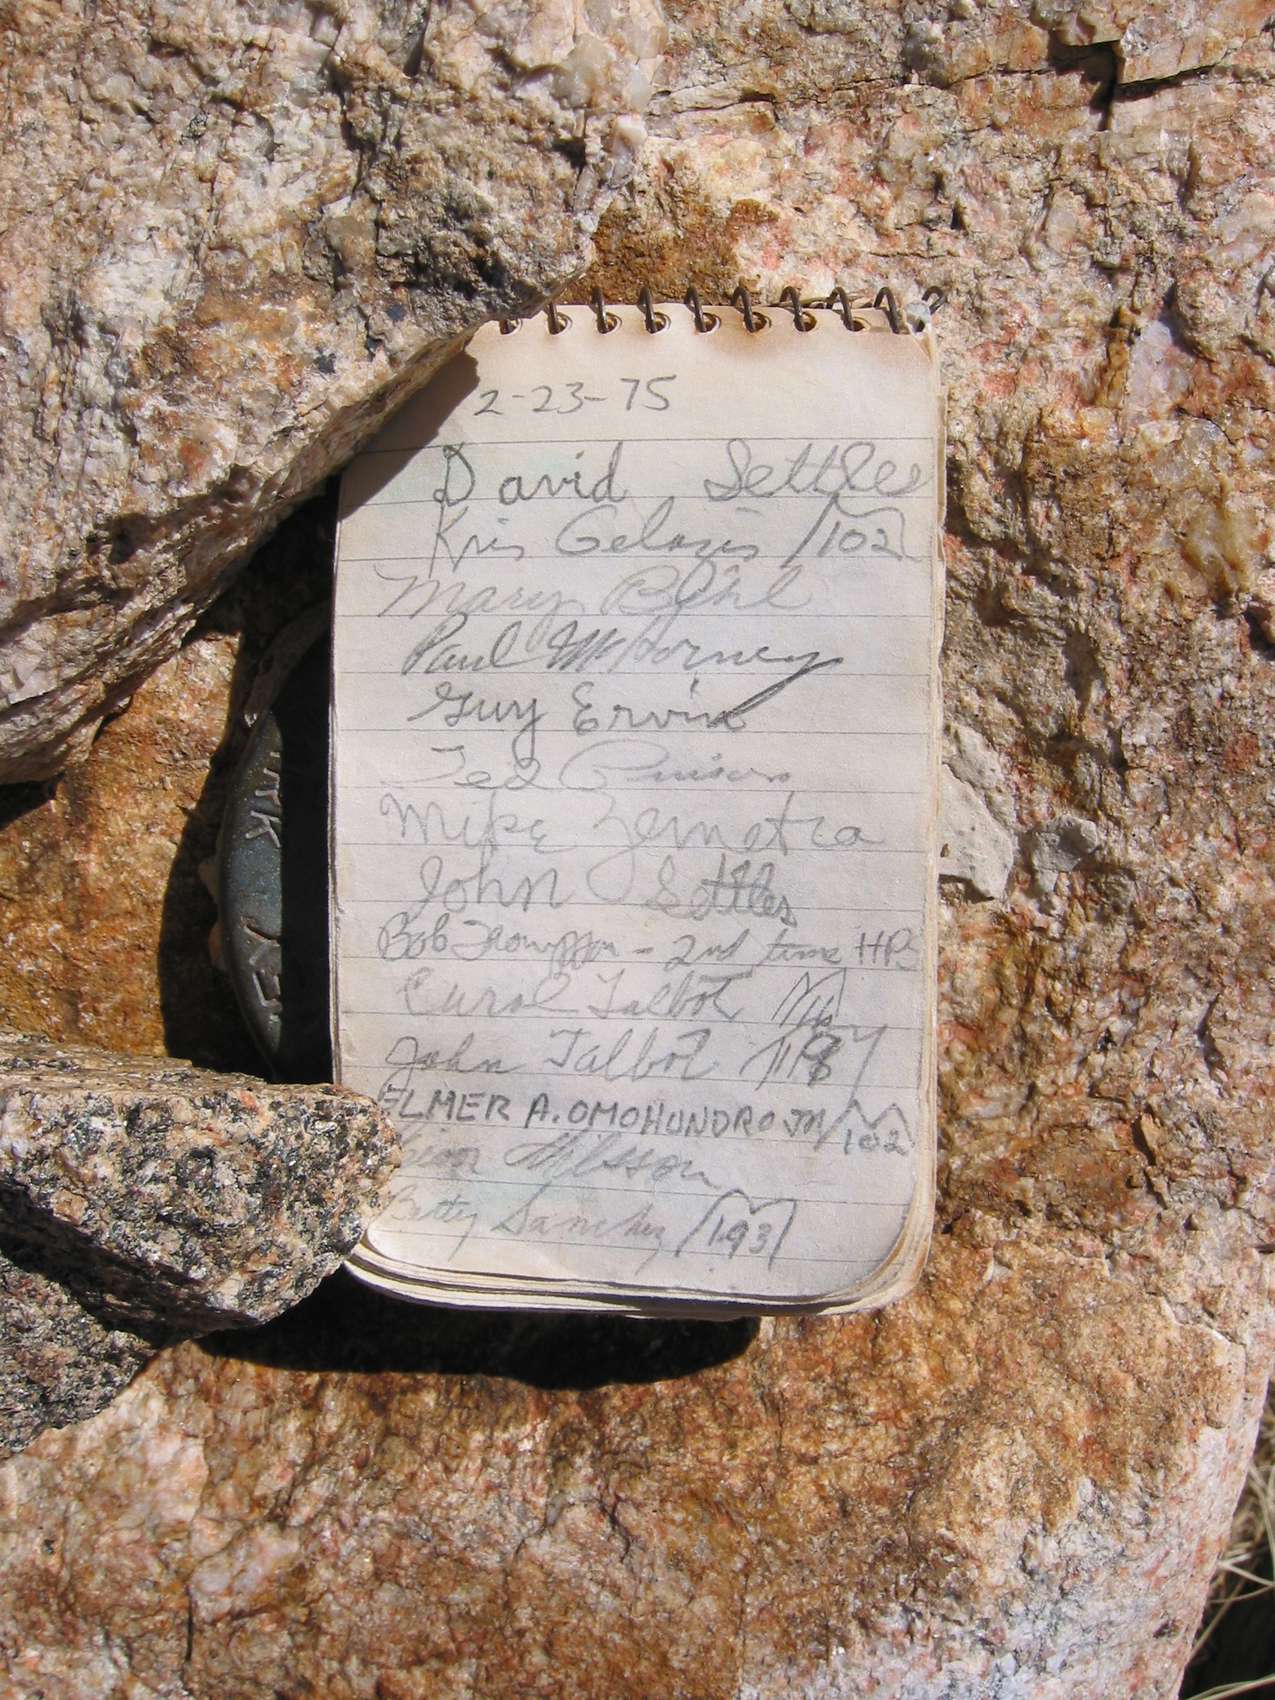 2-23-75
David Settles
Kris Gelazis /102
Mary Bihl
Paul McHorney
Guy Ervin
Ted
Mike Zemetra
John Settles
Bob Thompson - 2nd time HPS
Carol Talbot
John Talbot
ELMER A. OMOHUNDRO JR /102
Betty Sanchez /193/